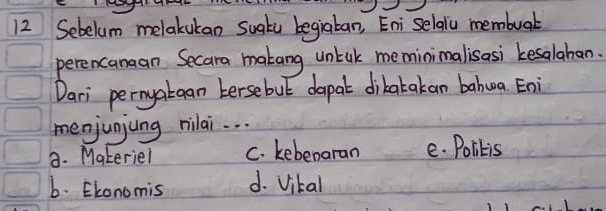 12 Sebelum melakukan suatu kegiatan, Eni selalu membuat
perencanaan secara matang untuk meminimalisasi kesalahan.
Dari pernyataan tersebut dapat dikatakan bahwa Eni
menjunjung nilai ...
a. Materiel c. kebenaran e. Politis
b. Ekonomis d. Vital